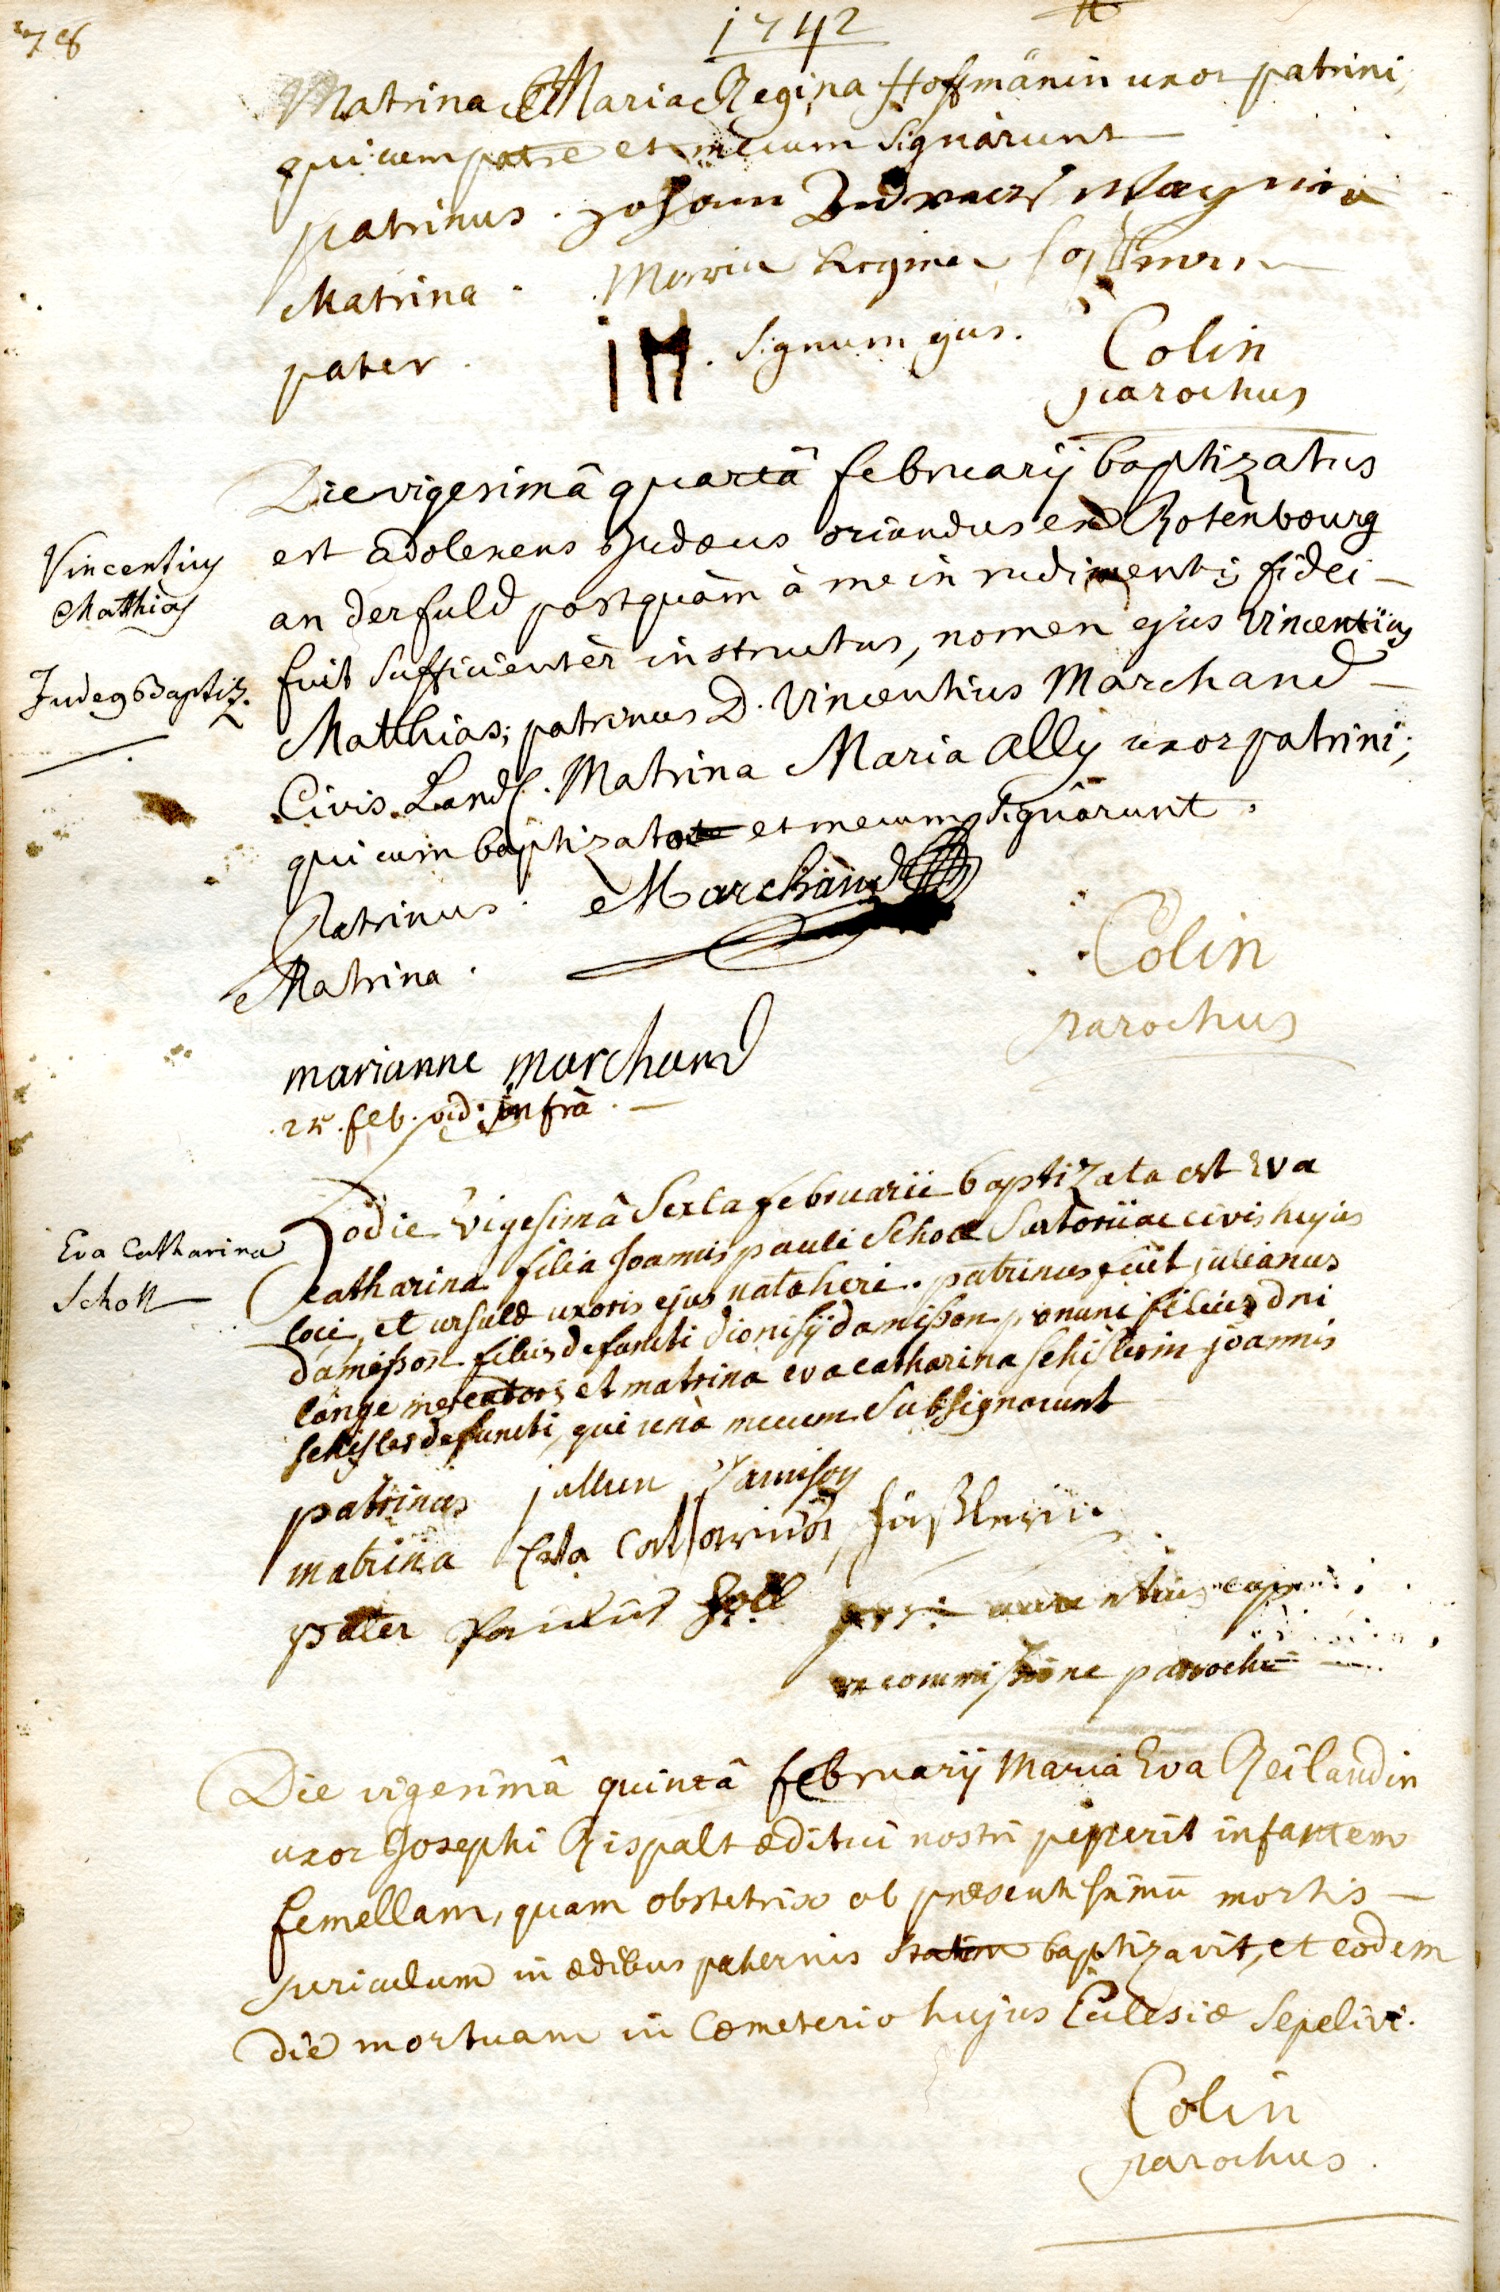 78
1742
Matrina Maria Regina Hoffmänin uxor patrini,
qui cum patre et mecum signârunt
patrinus. Johann
Matrina. Maria Regina
pater. IH. Signum ejus. Colin
parochus
Die vigesimâ quartâ februarij baptizatus
est adolexens Judæus oriundus ex Rotenbourg
an der fuld postquàm à me in rudimentis fidei
Vincentius
Matthias
fuit sufficientèr instructus, nomen ejus Vincentius
Judeus Baptiz.
Matthias; patrinus D. Vincentius Marchand
Civis Land. Matrina Maria Ally uxor patrini;
qui cum baptizato et mecum signârunt.
Patrinus. Marchand
Matrina. Colin
parochus
marianne marchand
25. feb. vid. infrà.
Eva Catharina
Schott
hodie vigesimâ sexta februarii baptizata est Eva
catharina filia Joannis pauli Scholl Sartorii ac civis hujus
loci, et ursulæ uxoris ejus nata heri. patrinus fuit julianus
damisson filius defuncti dionisij damisson filius dni
lange mercatoris et matrina eva catharina schislerin joannis
schisler defuncti, qui unà mecum subsignarunt
patrinus jullien Damison
matrina Eva Catharina
pater Paulus
ex commissione parochi
Die vigesimâ quintâ februarij Maria Eva Reilandin
uxor Josephi Rispalt æditui nostri peperit infantem
femellam, quam obstetrix ob præsentissimū mortis
periculum in ædibus paternis statim baptizavit, et eodem
die mortuam in Cæmeterio hujus Ecclesiæ sepelivi.
Colin
parochus.